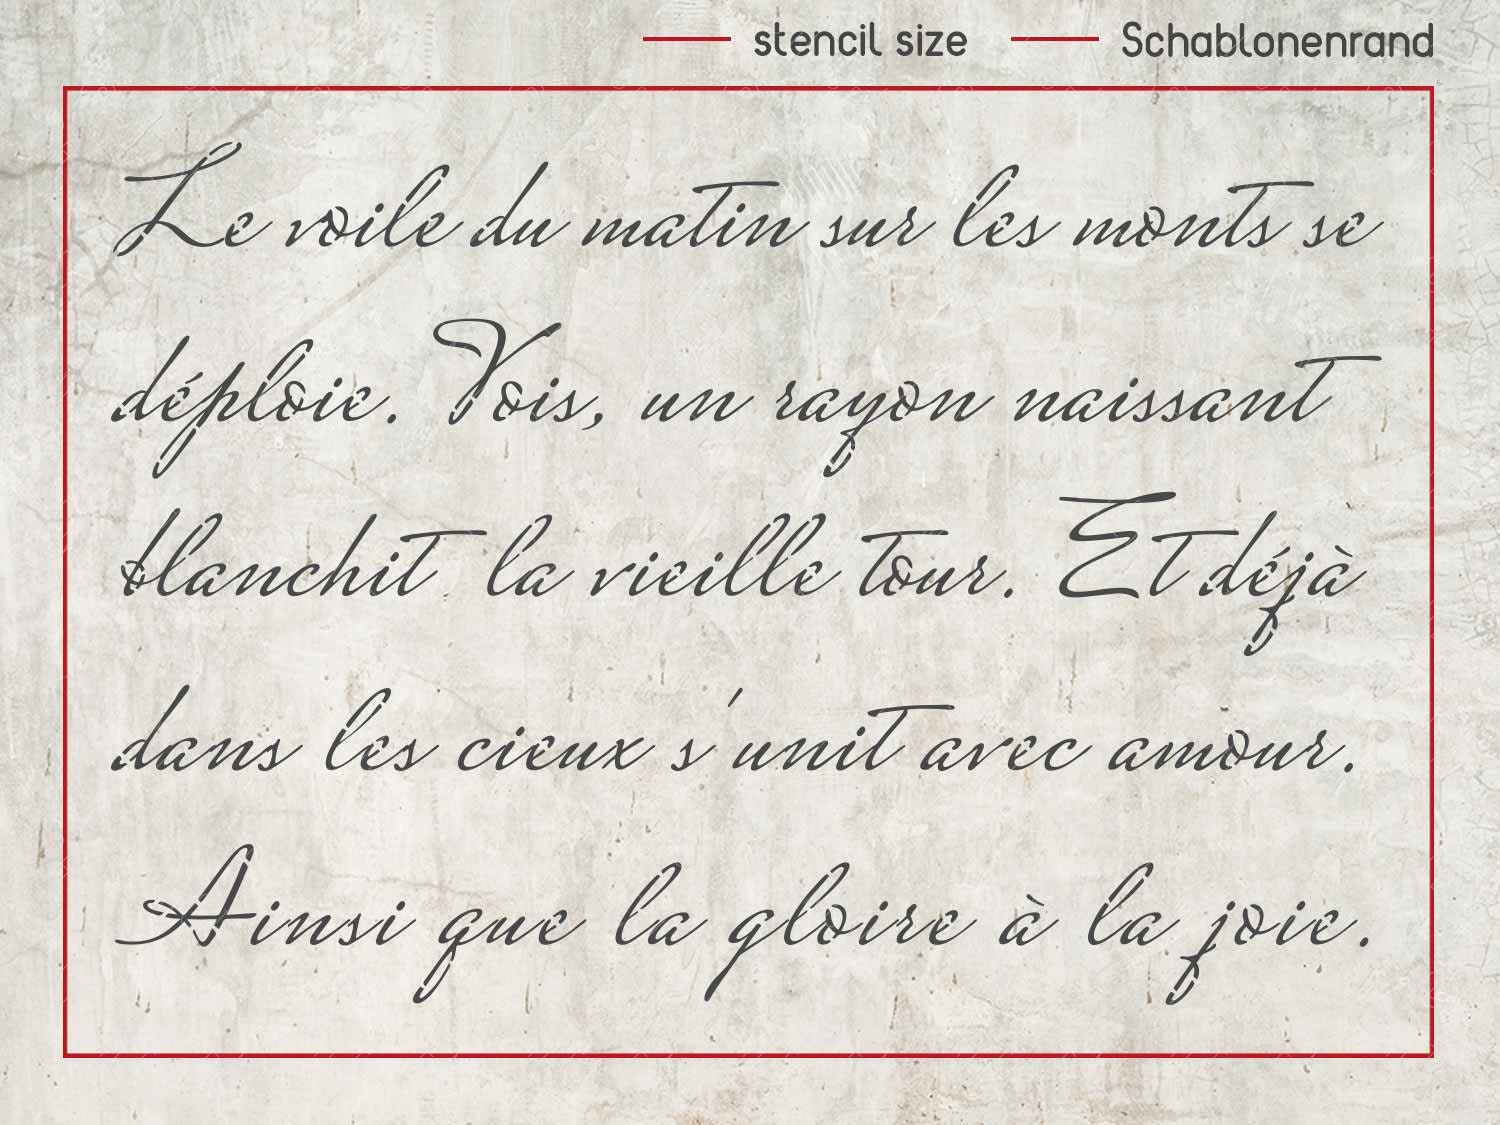 stencil size Schablonenrand
Le voile du matin sur les monts se
déploie. Vois, un rayon naissant
blanchit la vieille tour. Et déjà
dans les cieux s'unit avec amour.
Ainsi que la gloire à la joie.